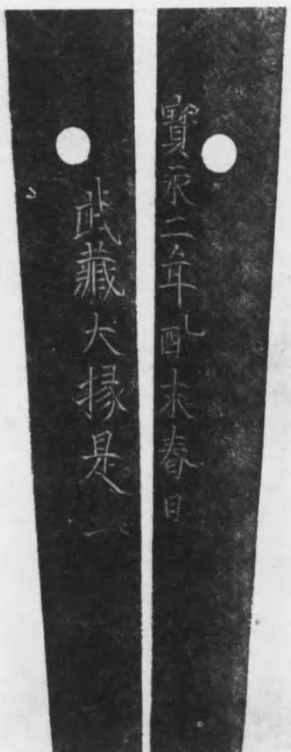 寶永二年乙酉末春日
武藏大掾是一